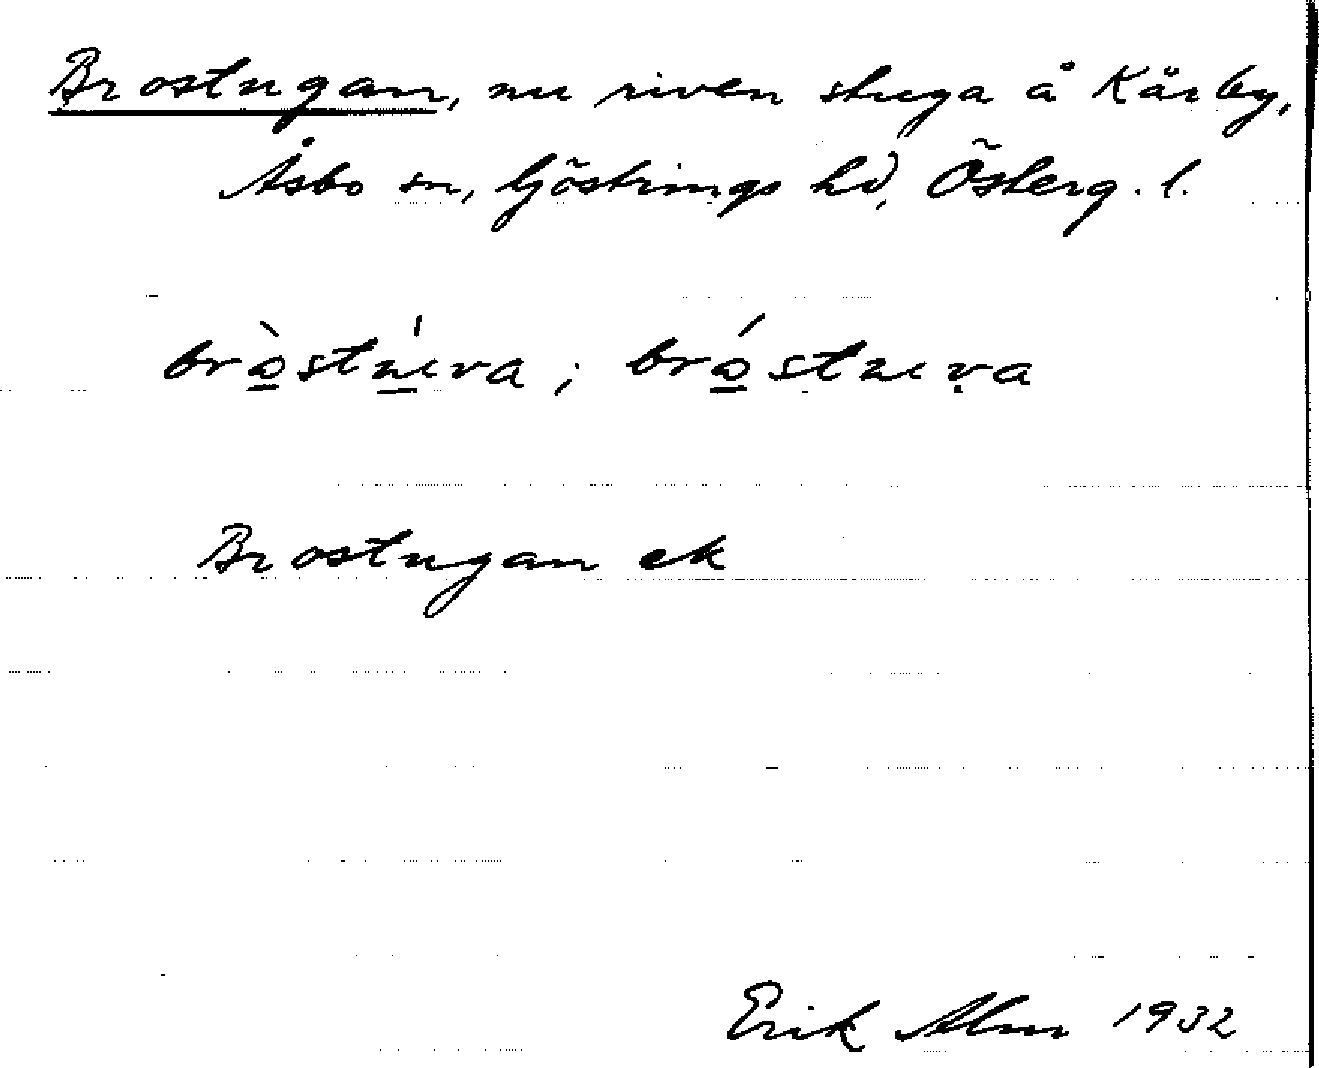 Brostugan, nu riven stuga å Kärby,
Åsbo sn, Göstrings hd, Österg. l.
brò̲stú̲va; bró̲stuṿa
Brostugan ek
Erik Alm 1932